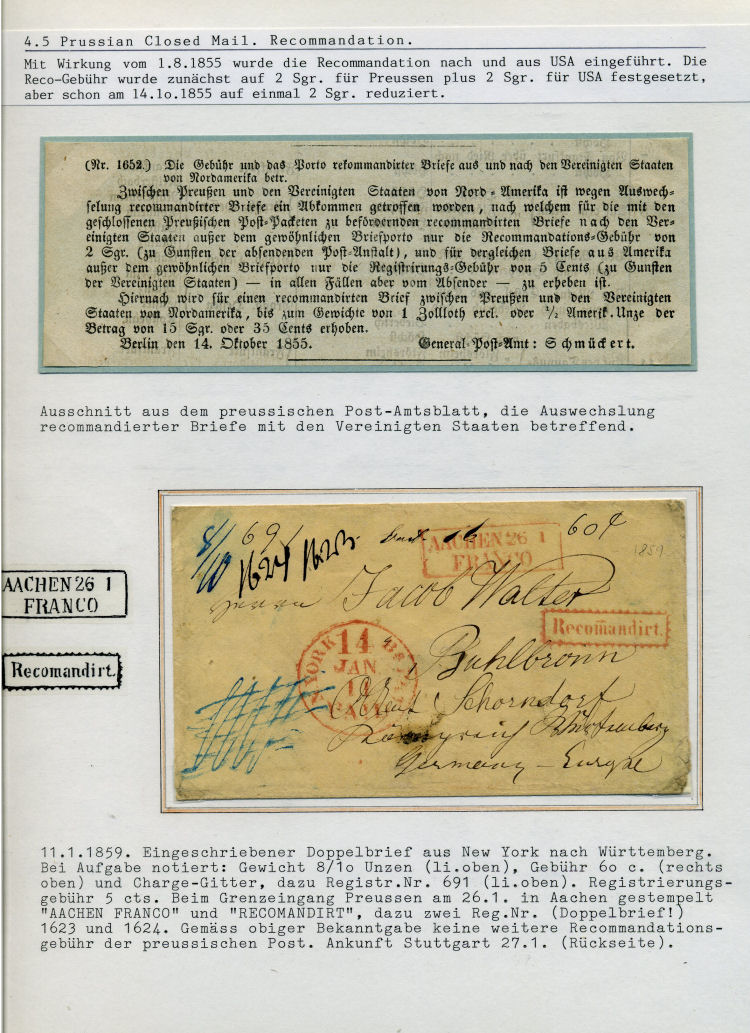 4.5 Prussian Closed Mail. Recommandation.
Mit Wirkung vom 1.8.1855 wurde die Recommandation nach und aus USA eingeführt. Die
Reco-Gebühr wurde zunächst auf 2 Sgr. für Preussen plus 2 Sgr. für USA festgesetzt,
aber schon am 14.1o.1855 auf einmal 2 Sgr. reduziert.
(Nr. 1652.) Die Gebühr und das Porto rekommandirter Briefe aus und nach den Vereinigten Staaten
von Nordamerika betr.
Zwischen Preußen und den Vereinigten Staaten von Nord-Amerika ist wegen Auswech-
selung recommandirter Briefe ein Abkommen getroffen worden, nach welchem für die mit den
geschlossenen Preußischen Post-Packeten zu befördernden recommandirten Briefe nach den Ver-
einigten Staaten außer dem gewöhnlichen Briefporto nur die Recommandations-Gebühr von
2 Sgr. (zu Gunsten der absendenden Post-Anstalt), und für dergleichen Briefe aus Amerika
außer dem gewöhnlichen Briefporto nur die Registrirungs-Gebühr von 5 Cents (zu Gunsten
der Vereinigten Staaten) — in allen Fällen aber vom Absender — zu erheben ist.
Hiernach wird für einen recommandirten Brief zwischen Preußen und den Vereinigten
Staaten von Nordamerika, bis zum Gewichte von 1 Zollloth excl. oder ½ Amerik. Unze der
Betrag von 15 Sgr. oder 35 Cents erhoben.
Berlin den 14. Oktober 1855. General-Post-Amt: Schmückert.
Ausschnitt aus dem preussischen Post-Amtsblatt, die Auswechslung
recommandierter Briefe mit den Vereinigten Staaten betreffend.
8/10 691 60¢
1624 1623
AACHEN 26 1
FRANCO
1859
Herrn Jacob Walter
Recomandirt.
Buhlbronn
14
JAN
Schorndorf
Königreich Württemberg
Germany - Europe
AACHEN 26 1
FRANCO
Recomandirt.
11.1.1859. Eingeschriebener Doppelbrief aus New York nach Württemberg.
Bei Aufgabe notiert: Gewicht 8/1o Unzen (li.oben), Gebühr 6o c. (rechts
oben) und Charge-Gitter, dazu Registr.Nr. 691 (li.oben). Registrierungs-
gebühr 5 cts. Beim Grenzeingang Preussen am 26.1. in Aachen gestempelt
"AACHEN FRANCO" und "RECOMANDIRT", dazu zwei Reg.Nr. (Doppelbrief!)
1623 und 1624. Gemäss obiger Bekanntgabe keine weitere Recommandations-
gebühr der preussischen Post. Ankunft Stuttgart 27.1. (Rückseite).